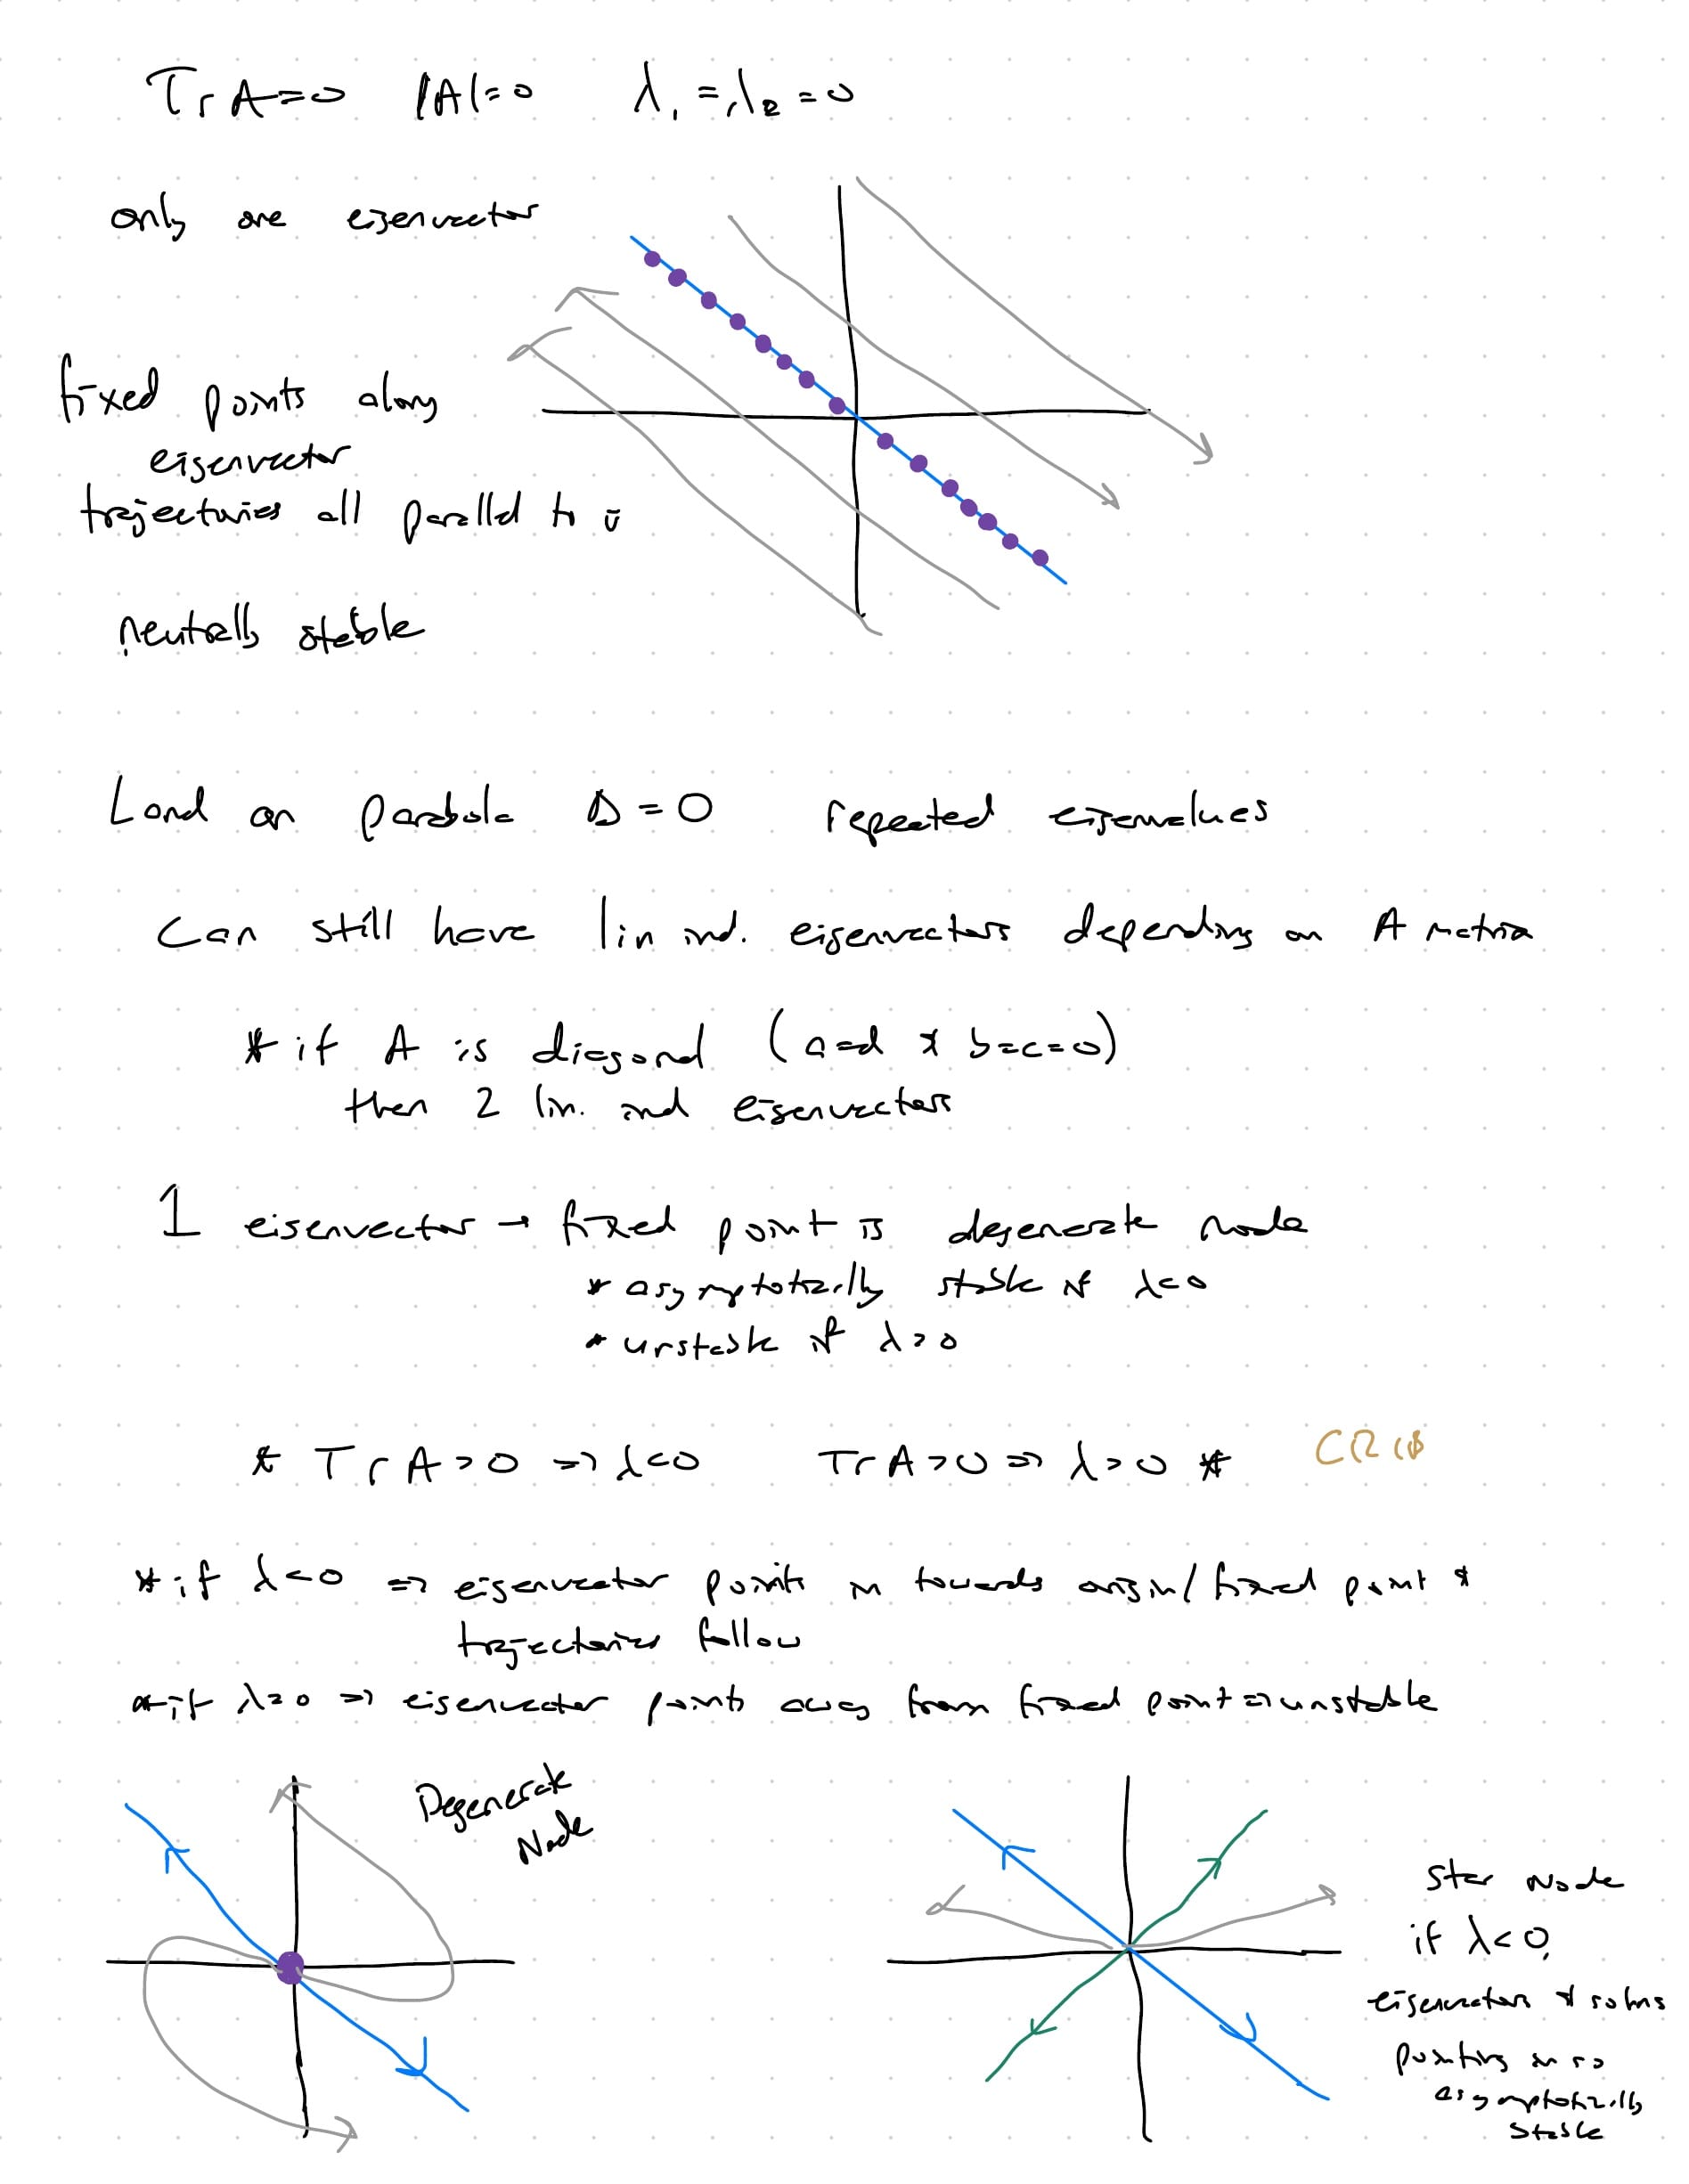 Tr A=0 |A|=0 λ₁ = λ₂ = 0
only one eigenvector
fixed points along
eigenvector
trajectories all parallel to v̄
neutrally stable
Land on parabola Δ = 0 repeated eigenvalues
can still have lin ind. eigenvectors depending on A matrix
* if A is diagonal (a=d & b=c=0)
then 2 lin. ind eigenvectors
1 eigenvector → fixed point is degenerate node
* asymptotically stable if λ<0
* unstable if λ>0
* Tr A > 0 => λ<0 Tr A > 0 => λ > 0 * CRIB
* if λ<0 => eigenvector points in towards origin/fixed point &
trajectories follow
* if λ>0 => eigenvector points away from fixed point => unstable
Degenerate
Node
Star Node
if λ<0,
eigenvectors & solns
pointing in so
asymptotically
stable